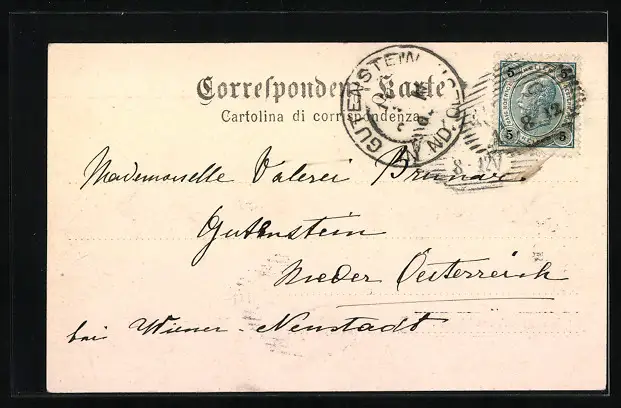 Correspondenz-Karte
Cartolina di corrispondenza
GUTENSTEIN
5 5
5 5
8-12
Mademoiselle Valerei
Gutenstein
Nieder Oesterreich
bei Wiener-Neustadt